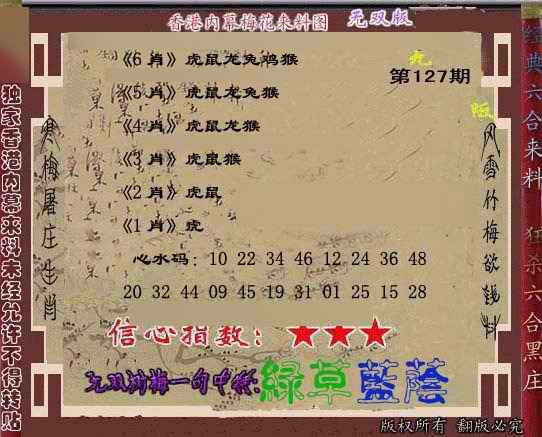 香港内幕梅花来料图 无双版
《6 肖》虎鼠龙兔鸡猴
第127期
《5 肖》虎鼠龙兔猴
《4 肖》虎鼠龙猴
《3 肖》虎鼠猴
《2 肖》虎鼠
《1 肖》虎
心水码：10 22 34 46 12 24 36 48
20 32 44 09 45 19 31 01 25 15 28
信心指数：★★★
一句中特:綠草藍蔭
版权所有 翻版必究
独家香港内幕来料未经允许不得转贴
寒梅屠庄生肖
风雪竹梅欲钱料
经典六合来料 狂杀六合黑庄